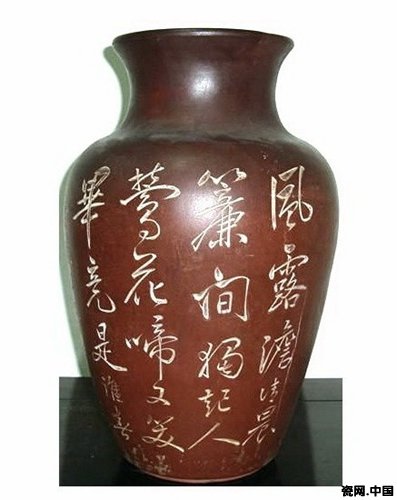 風露澹清晨
簾间獨起人
鶯花啼又笑
畢竟是誰春
瓷网.中国